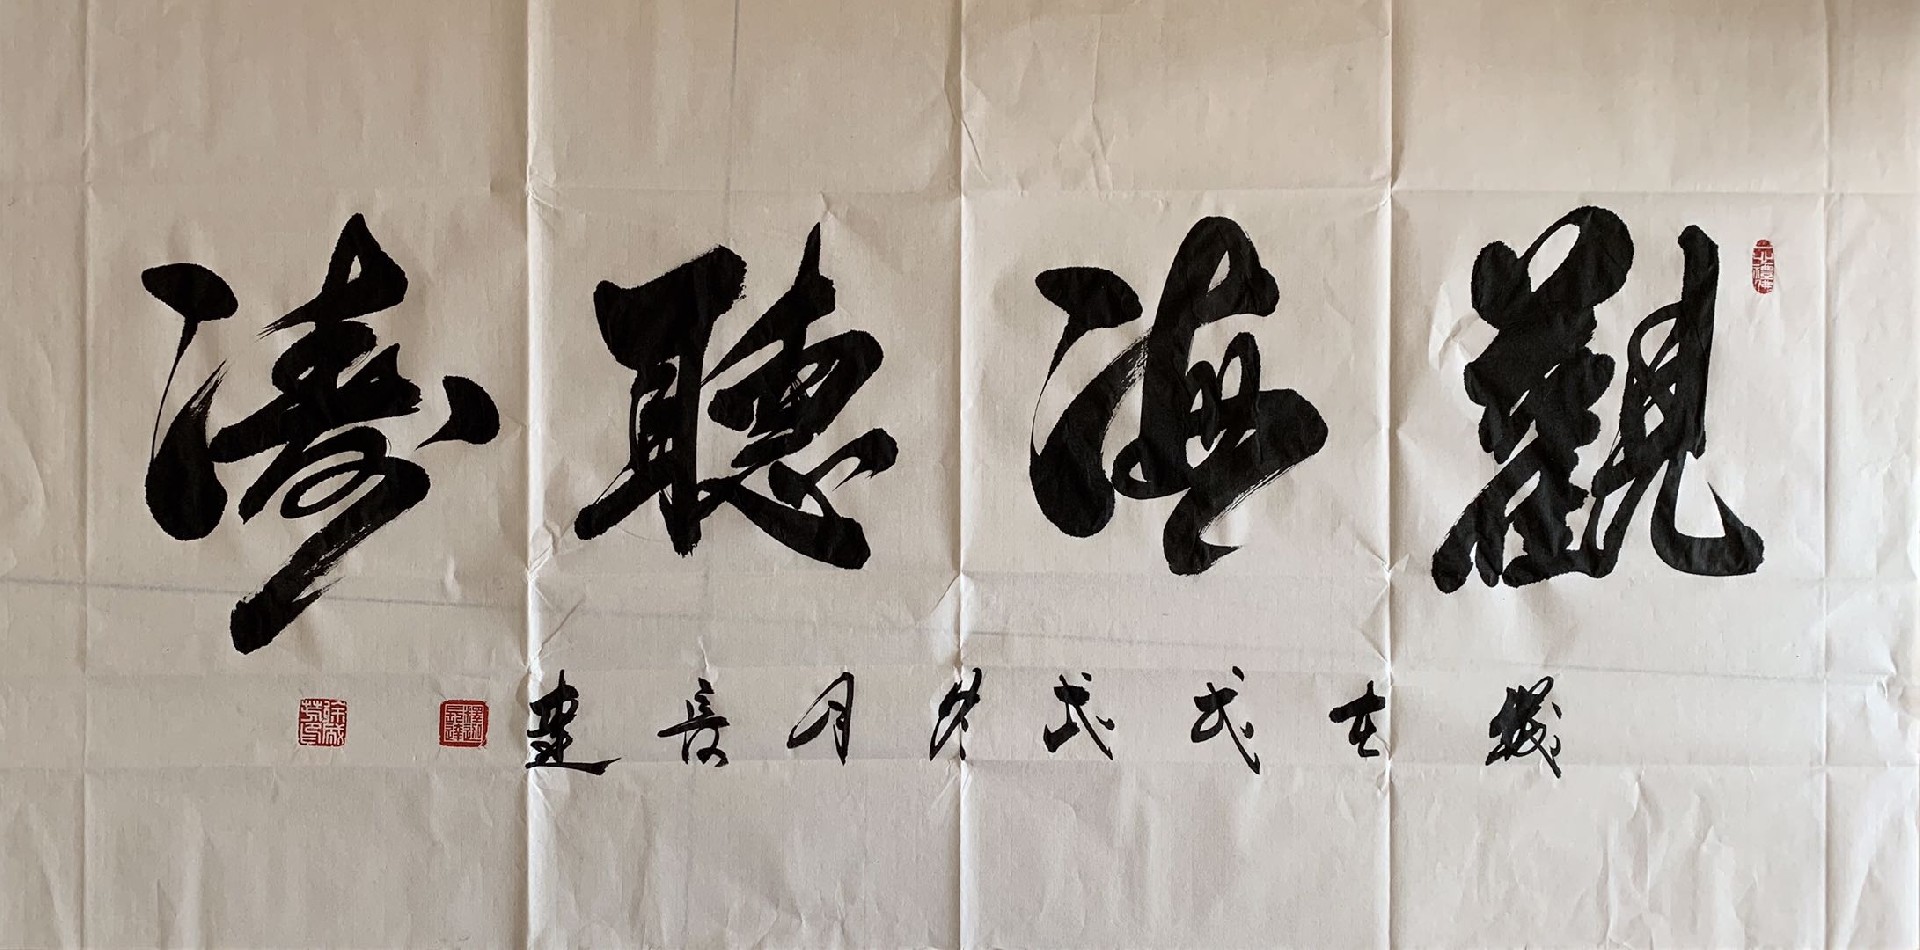 觀海聽濤
歲在戊戌冬月長